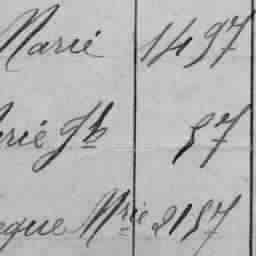 Marie 1497
rie Jh 57
eque Mrie 2157